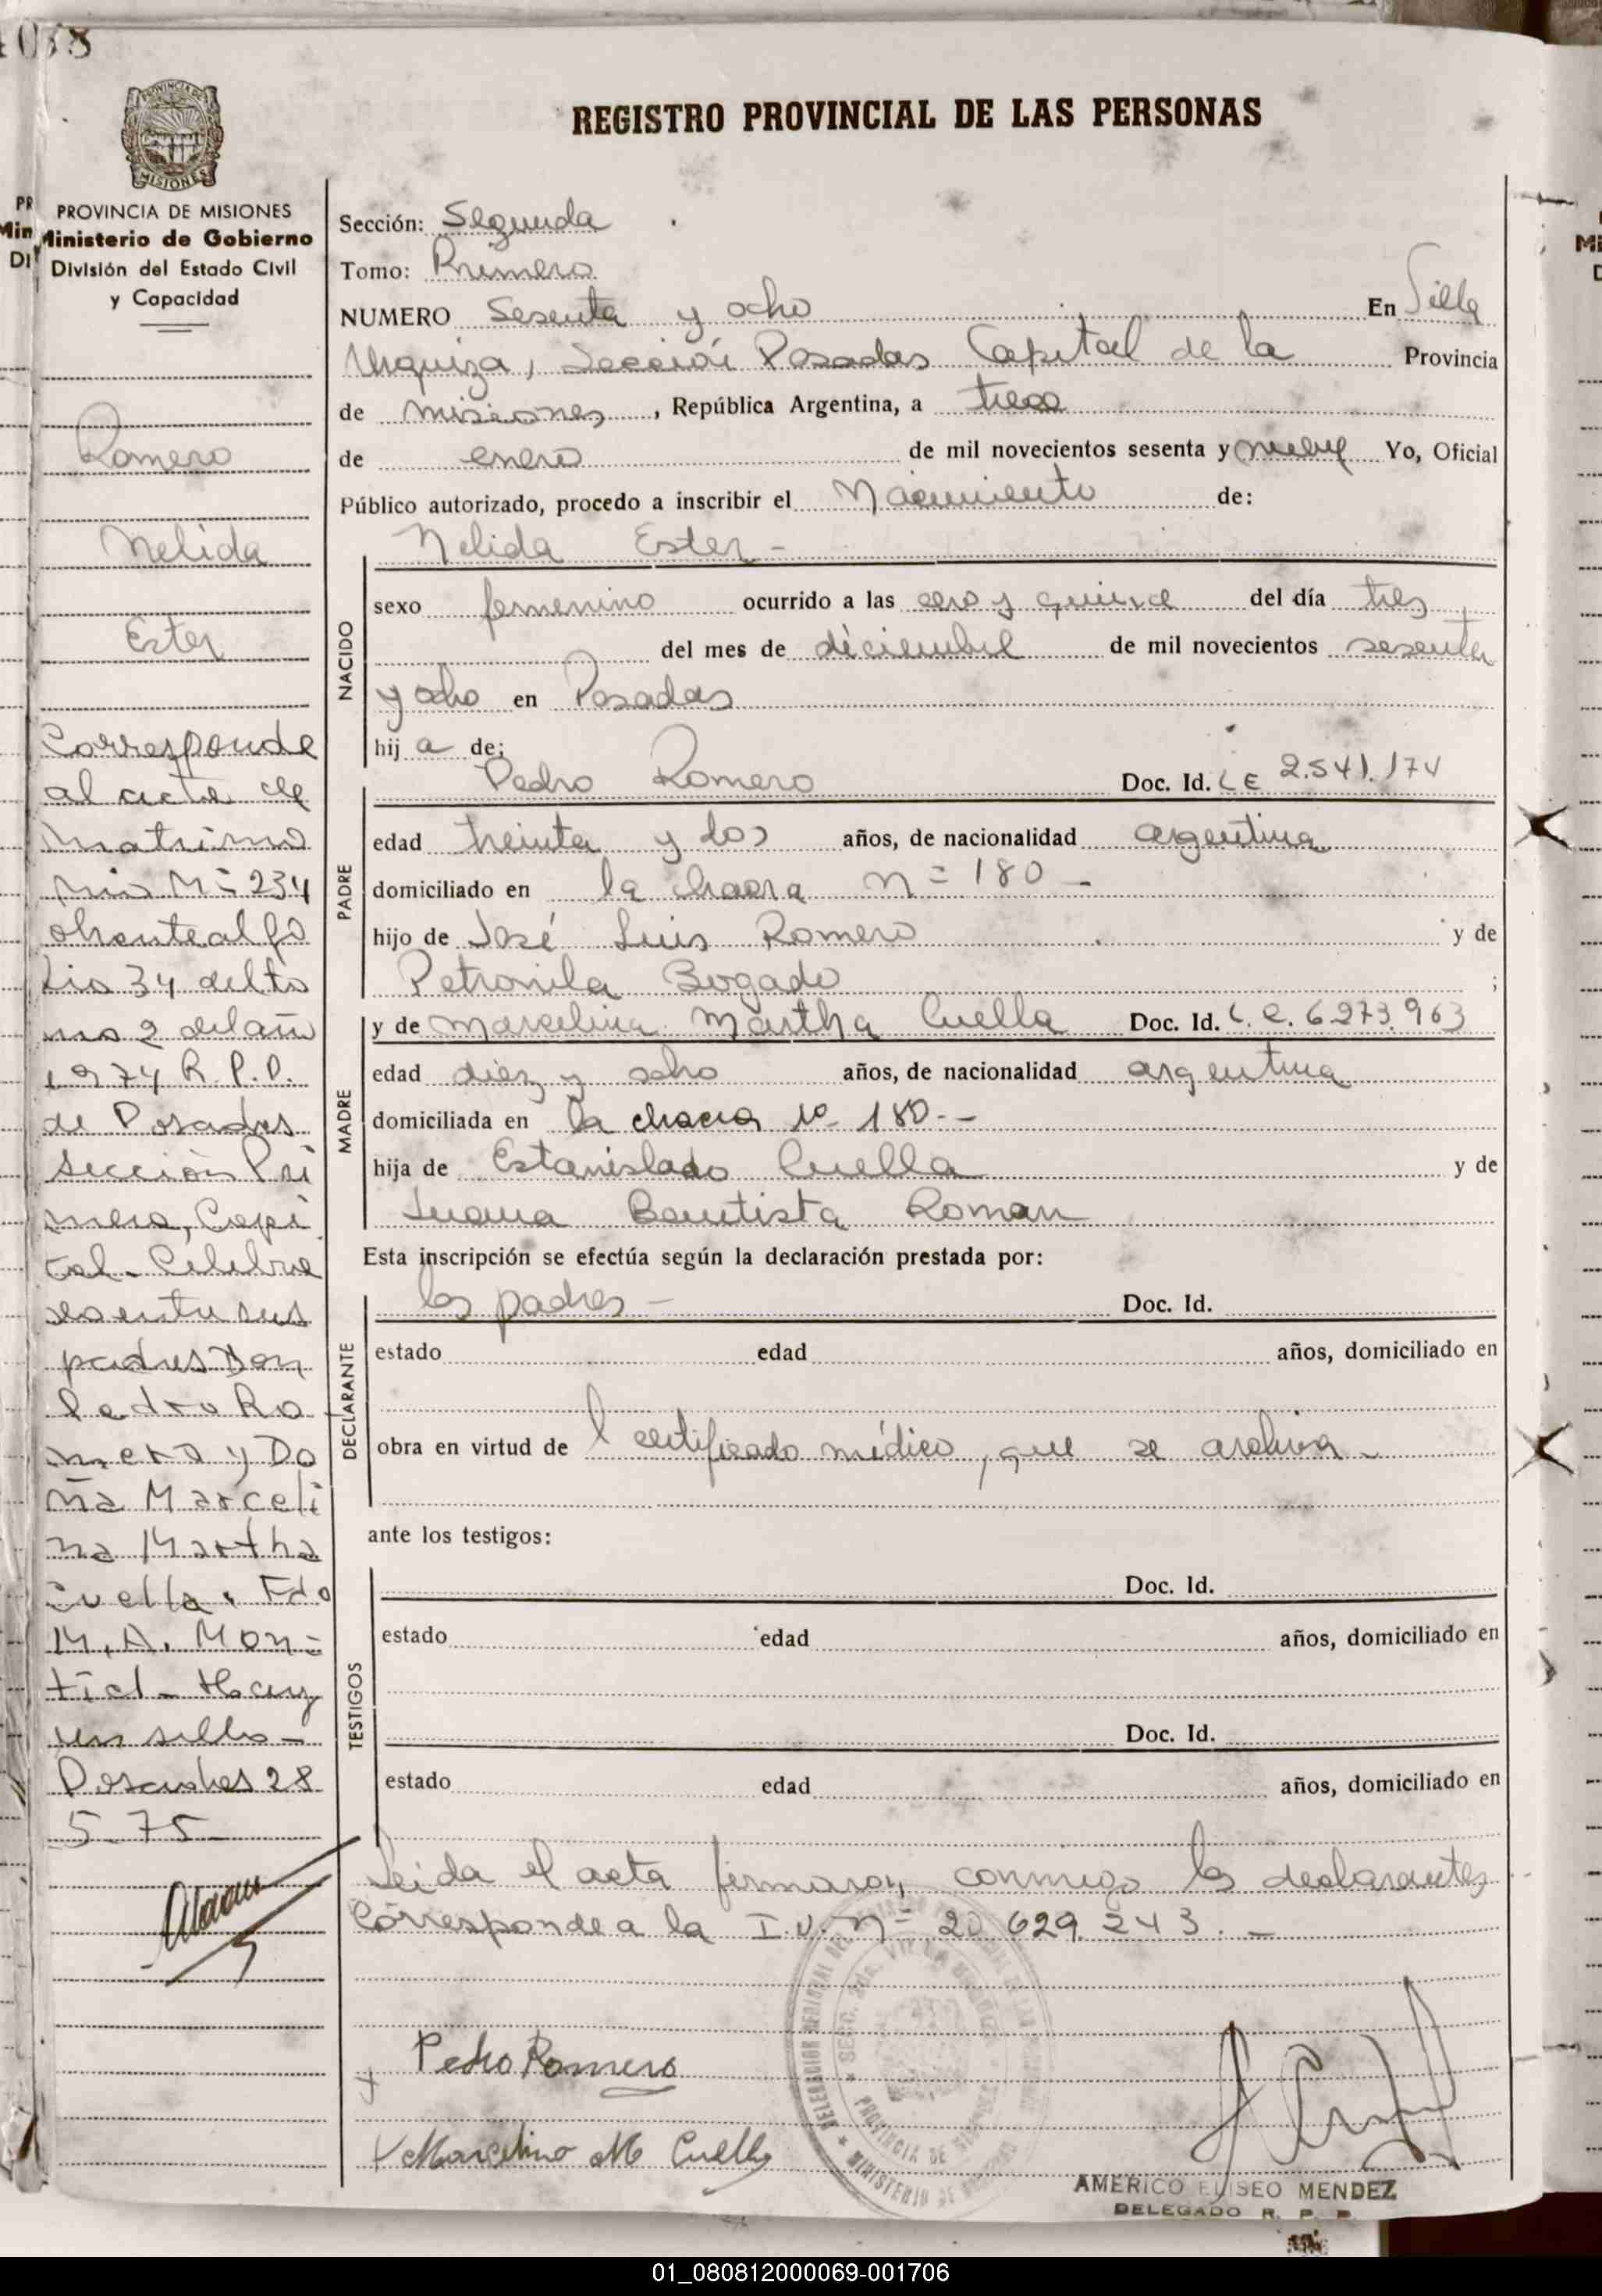 REGISTRO PROVINCIAL DE LAS PERSONAS
PROVINCIA DE MISIONES
Ministerio de Gobierno
División del Estado Civil
y Capacidad
Romero
Nelida
Ester
Corresponde
al acta de
matrimo
nio Nº 234
obrante al fo
lio 34 del to
mo 2 del año
1974 R.P.P.
de Posadas
Sección Pri
mera, Capi
tal - Celebra
do entre sus
padres Don
Pedro Ro
mero y Do
ña Marceli
na Martha
Cuella. Fdo
M.A. Mon=
tiel - Hay
un sello -
Posadas 28
5-75
Sección: Segunda
Tomo: Primero
NUMERO Sesenta y ocho En Villa
Urquiza, Sección Posadas Capital de la Provincia
de misiones, República Argentina, a trece
de enero de mil novecientos sesenta y nueve Yo, Oficial
Público autorizado, procedo a inscribir el Nacimiento de:
Nelida Ester -
NACIDO
sexo femenino ocurrido a las cero y quince del día tres
del mes de diciembre de mil novecientos sesenta
y ocho en Posadas
hij a de:
Pedro Romero Doc. Id. L E 2.541.174
PADRE
edad treinta y dos años, de nacionalidad argentina
domiciliado en la chacra nº 180 -
hijo de José Luis Romero y de
Petronila Bogado ;
y de Marcelina Martha Cuella Doc. Id. L. C. 6.273.963
MADRE
edad diez y ocho años, de nacionalidad argentina
domiciliada en la chacra nº 180 --
hija de Estanislado Cuella y de
Juana Bautista Roman
Esta inscripción se efectúa según la declaración prestada por:
DECLARANTE
los padres - Doc. Id.
estado edad años, domiciliado en
obra en virtud de l certificado médico, que se archiva -
ante los testigos:
TESTIGOS
Doc. Id.
estado edad años, domiciliado en
Doc. Id.
estado edad años, domiciliado en
Leida el acta firmaron conmigo los declarantes
Corresponde a la I.U. nº 20.629.243. -
Pedro Romero
Marcelina M Cuella
AMERICO ELISEO MENDEZ
DELEGADO R. P. P.
01_080812000069-001706